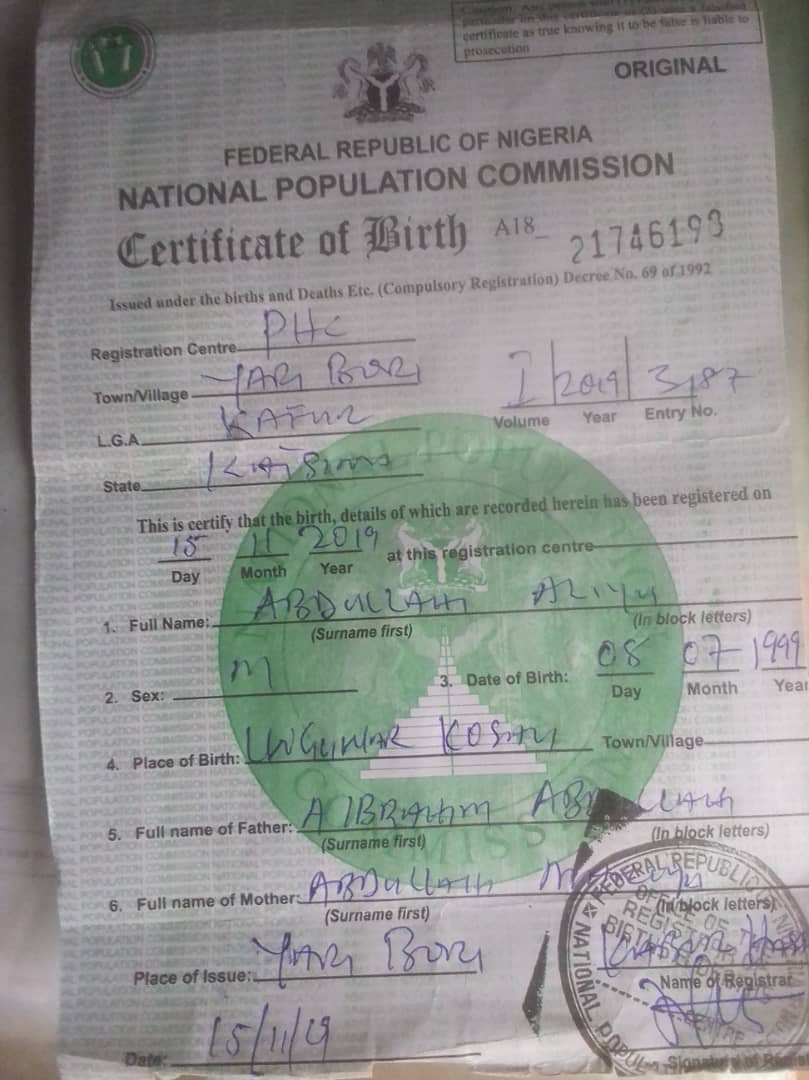 particular on this certificate or (b) uses a falsified
certificate as true knowing it to be false is liable to
prosecution
ORIGINAL
FEDERAL REPUBLIC OF NIGERIA
NATIONAL POPULATION COMMISSION
Certificate of Birth A18_ 21746193
Issued under the births and Deaths Etc. (Compulsory Registration) Decree No. 69 of 1992
Registration Centre PHC
Town/Village YARI BORI
I 2019 3187
Volume Year Entry No.
L.G.A KAFUR
State KATSINA
This is certify that the birth, details of which are recorded herein has been registered on
15 11 2019 at this registration centre
Day Month Year
1. Full Name: ABDULLAHI ALIYU
(Surname first) (In block letters)
2. Sex: M 3. Date of Birth: 08 07 1999
Day Month Year
4. Place of Birth: UNGUWAR Town/Village
5. Full name of Father: A IBRAHIM ABDULLAHI
(Surname first) (In block letters)
6. Full name of Mother: ABDULLAHI
(Surname first) (In block letters)
Place of Issue: YARI BORI
Name of Registrar
Date: 15/11/19
Signature of
FEDERAL REPUBLIC
OFFICE OF
NATIONAL POPUL